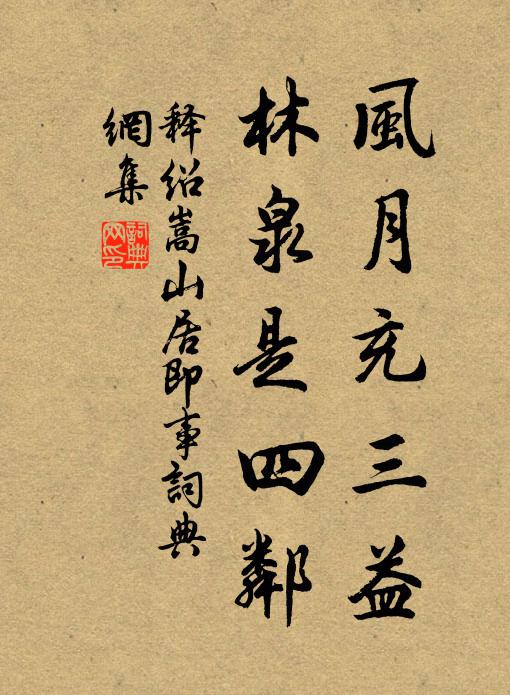 風月充三益
林泉是四鄰
释紹嵩山居即事詞典
網集
詞典
网印